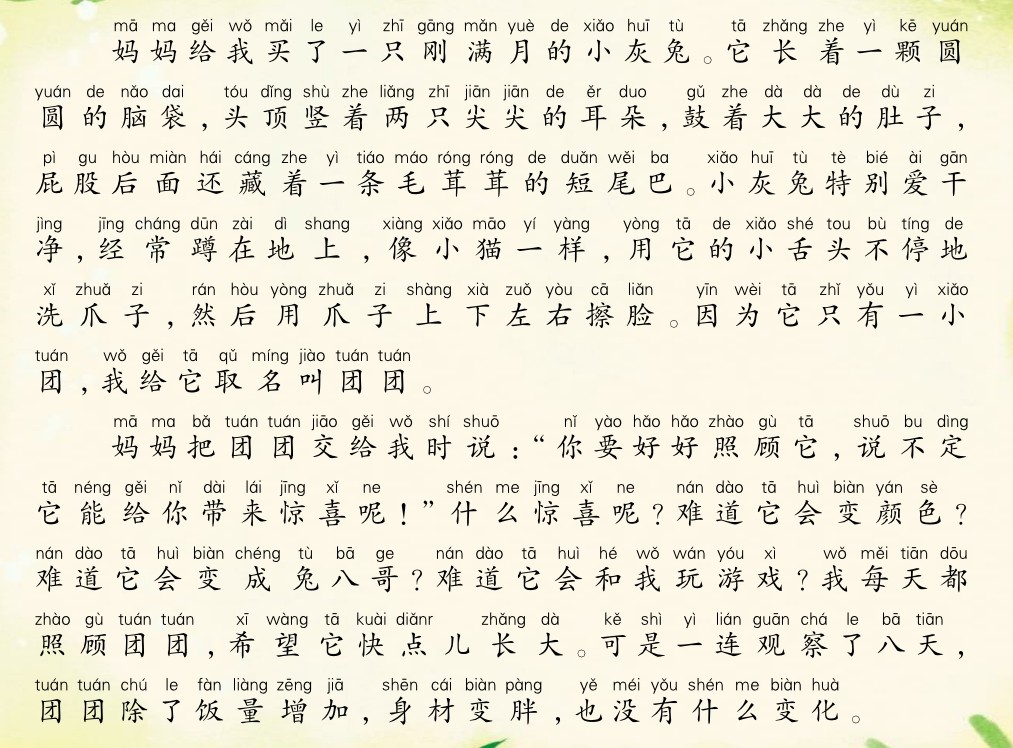 mā ma gěi wǒ mǎi le yì zhī gāng mǎn yuè de xiǎo huī tù tā zhǎng zhe yì kē yuán
妈妈给我买了一只刚满月的小灰兔。它长着一颗圆
yuán de nǎo dai tóu dǐng shù zhe liǎng zhī jiān jiān de ěr duo gǔ zhe dà dà de dù zi
圆的脑袋，头顶竖着两只尖尖的耳朵，鼓着大大的肚子，
pì gu hòu miàn hái cáng zhe yì tiáo máo róng róng de duǎn wěi ba xiǎo huī tù tè bié ài gān
屁股后面还藏着一条毛茸茸的短尾巴。小灰兔特别爱干
jìng jīng cháng dūn zài dì shang xiàng xiǎo māo yí yàng yòng tā de xiǎo shé tou bù tíng de
净，经常蹲在地上，像小猫一样，用它的小舌头不停地
xǐ zhuǎ zi rán hòu yòng zhuǎ zi shàng xià zuǒ yòu cā liǎn yīn wèi tā zhǐ yǒu yì xiǎo
洗爪子，然后用爪子上下左右擦脸。因为它只有一小
tuán wǒ gěi tā qǔ míng jiào tuán tuán
团，我给它取名叫团团。
mā ma bǎ tuán tuán jiāo gěi wǒ shí shuō nǐ yào hǎo hǎo zhào gù tā shuō bu dìng
妈妈把团团交给我时说：“你要好好照顾它，说不定
tā néng gěi nǐ dài lái jīng xǐ ne shén me jīng xǐ ne nán dào tā huì biàn yán sè
它能给你带来惊喜呢！”什么惊喜呢？难道它会变颜色？
nán dào tā huì biàn chéng tù bā ge nán dào tā huì hé wǒ wán yóu xì wǒ měi tiān dōu
难道它会变成兔八哥？难道它会和我玩游戏？我每天都
zhào gù tuán tuán xī wàng tā kuài diǎnr zhǎng dà kě shì yì lián guān chá le bā tiān
照顾团团，希望它快点儿长大。可是一连观察了八天，
tuán tuán chú le fàn liàng zēng jiā shēn cái biàn pàng yě méi yǒu shén me biàn huà
团团除了饭量增加，身材变胖，也没有什么变化。